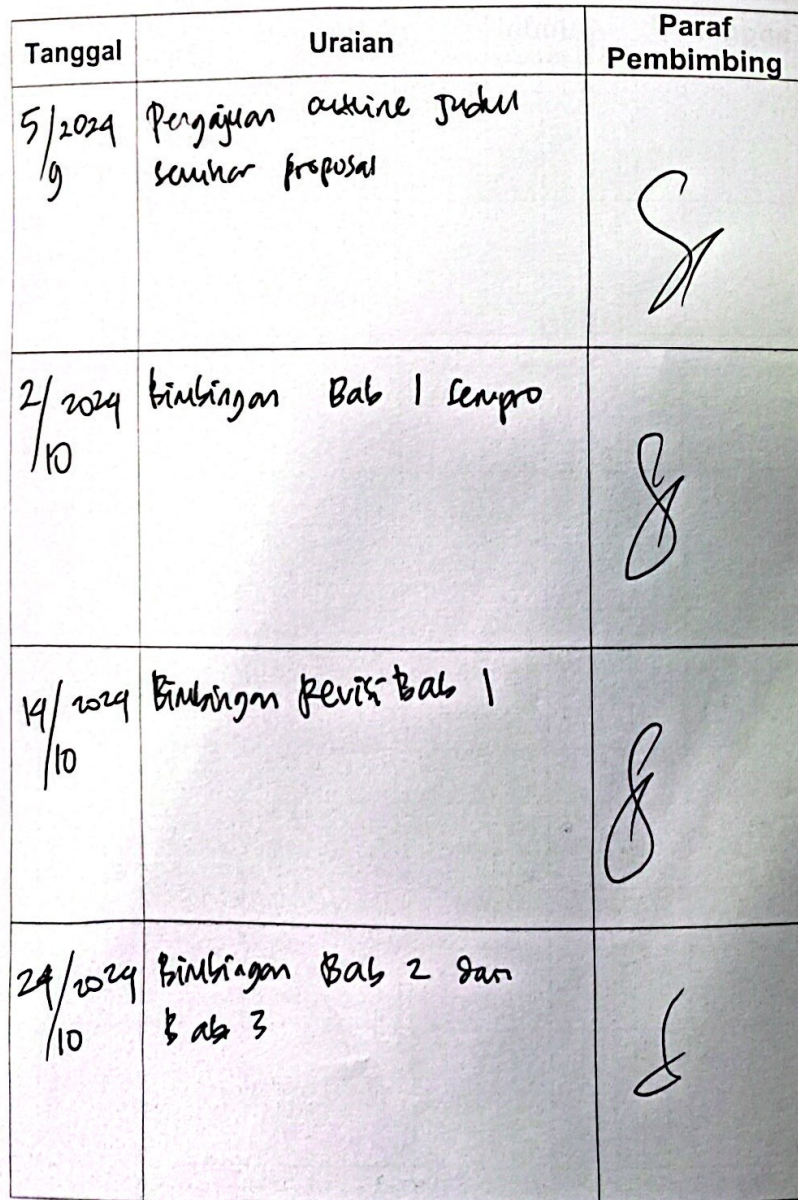 Tanggal Uraian Paraf Pembimbing
5/9 2024 Pengajuan outline Judul
seminar proposal
2/10 2024 Bimbingan Bab 1 Sempro
14/10 2024 Bimbingan Revisi Bab 1
24/10 2024 Bimbingan Bab 2 dan
Bab 3